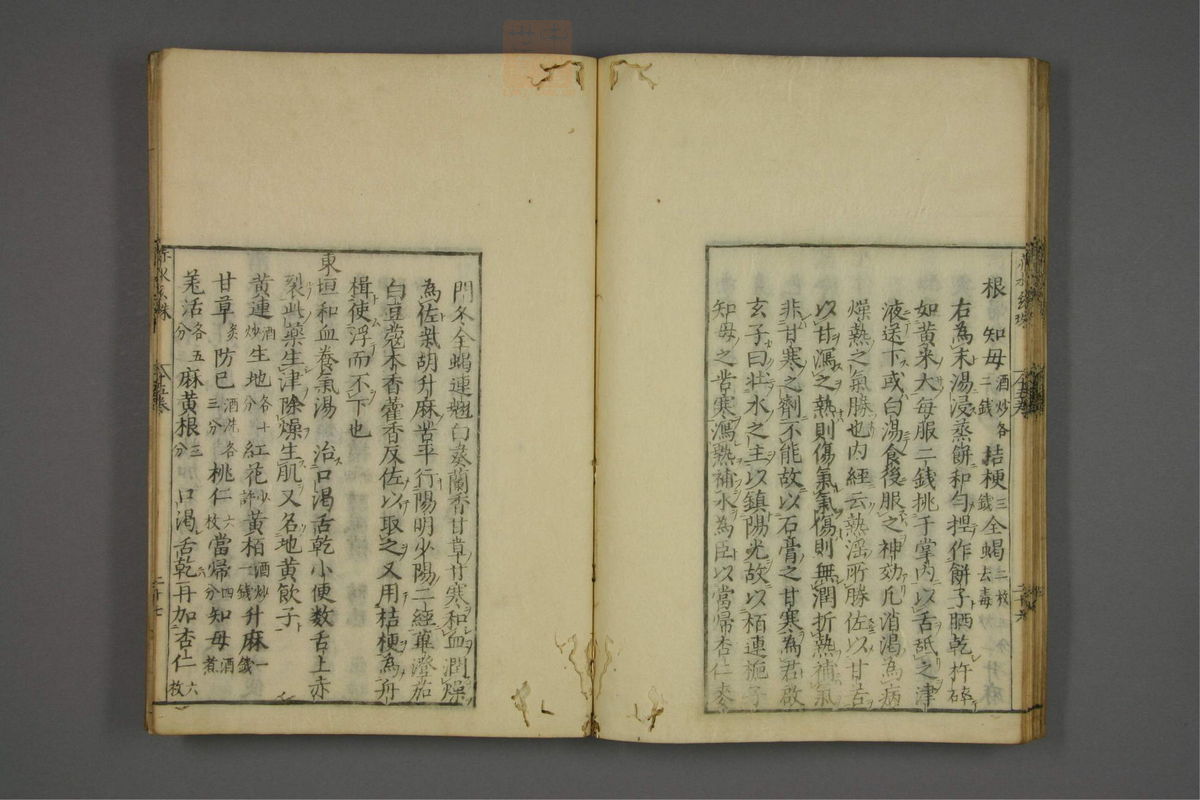 根　知母酒炒各二錢　桔梗三錢全蝎二枚去毒
右為末湯浸蒸餅和勻揑作餅子晒乾杵碎
如黃米大每服二錢挑于掌內以舌舐之津
液送下或白湯食後服之神効凡消渴為病
燥熱之氣勝也內經云熱淫所勝佐以甘苦
以甘瀉之熱則傷氣氣傷則無潤折熱補氣
非甘寒之劑不能故以石膏之甘寒為君啟
玄子曰壯水之主以鎮陽光故以栢連梔子
知母之苦寒瀉熱補水為臣以當歸杏仁麥
門冬全蝎連翹白葵蘭香甘草甘寒和血潤燥
為佐柴胡升麻苦平行陽明少陽二經蓽澄茄
白豆蔻木香藿香反佐以取之又用桔梗為舟
楫使浮而不下也
東垣和血養氣湯　治口渴舌乾小便数舌上赤
裂此藥生津除燥生肌又名地黃飲子
黃連酒炒生地各十分紅花少許黃栢酒炒一錢升麻一錢
甘草炙防已酒洗各三分桃仁六枚當歸四分知母酒煮
羗活各五分麻黃根三分　口渴舌乾再加杏仁六枚
赤水玄珠　十五卷　二十七